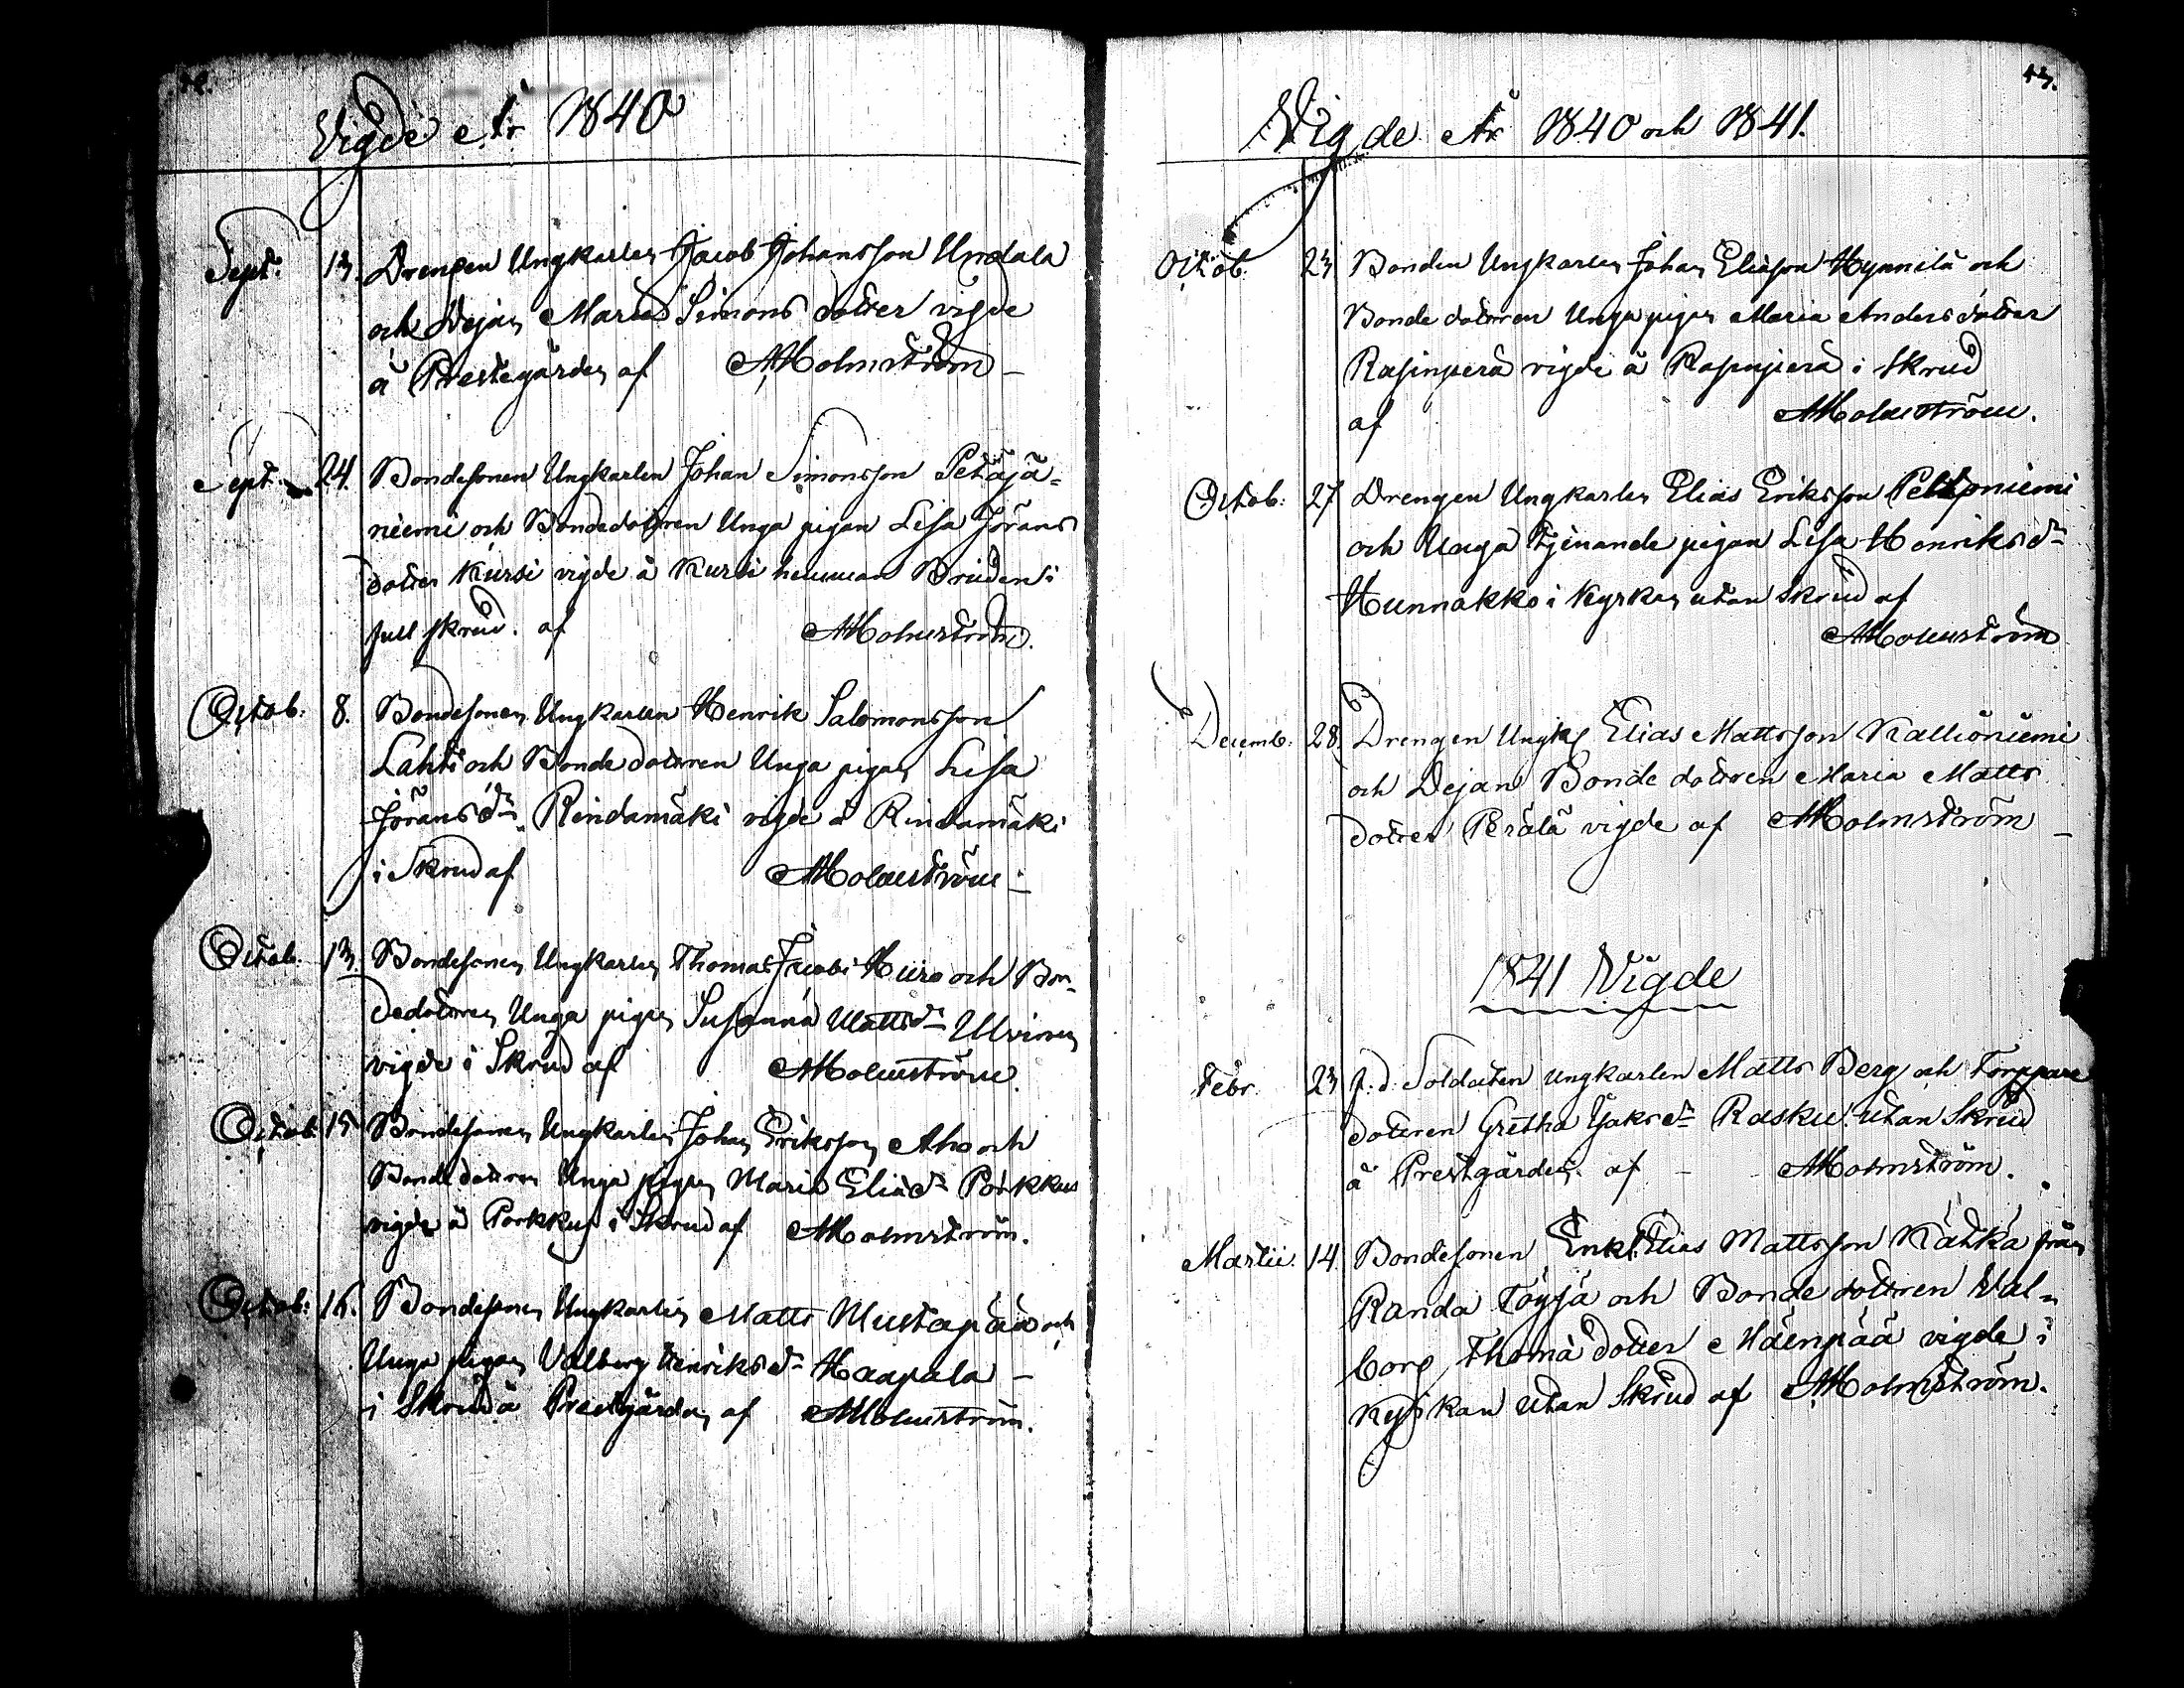 Vigde År 1840
Sept. 13. Drengen Ungkarlen Jacob Johansson Undala
och Dejan Maria Simons dotter vigde
å Prestegården af AHolmström
Sept. 24. Bondesonen Ungkarlen Johan Simonsson Petäjä-
niemi och Bondedottren Unga pigan Lisa Jörans
dotter Kursi vigde å Kursi hemman Bruden i
full skrud. af AHolmström.
Octob. 8. Bondesonen Ungkarlen Henrik Salomonsson
Lahti och Bonde dottren Unga pigan Lisa
Jörans dr Rindamäki vigde å Rindamäki
i Skrud af AHolmström
Octob. 13. Bondesonen Ungkarlen Thomas Jacobs Hiiro och Bon-
dedottren Unga pigan Susanna Mattsdr
vigde i Skrud af AHolmström.
Octob. 15 Bondesonen Ungkarlen Johan Eriksson Aho och
Bonde dottren Unga pigan Maria Eliædr Porkkus
vigde å Porkkus i Skrud af AHolmström.
Octob: 16. Bondesonen Ungkarlen Matts Mustapää och
Unga pigan Valborg Henriksdr Haapala
i Skrud å Prestgården af AHolmström.
43.
Vigde År 1840 och 1841.
Octob. 23 Bonden Ungkarlen Johan Eliasson Hynnilä och
Bonde dottren Unga pigan Maria Anders dotter
Rasinperä vigde å Rasinperä i Skrud
af AHolmström.
Octob: 27 Drengen Ungkarlen Elias Eriksson Peltoniemi
och Unga tjenande pigan Lisa Henriks dr
Hunnakko i Kyrkan utan Skrud af
AHolmström
Decemb: 28. Drengen Ungk Elias Mattsson Kallioniemi
och Dejan Bonde dottren Maria Matts
dotter Perälä vigde af AHolmström
1841 Vigde
Febr. 23 f.d. Soldaten ungkarlen Matts Berg och Torppare
dottren Gretha Isaks dr Rasku utan Skrud
å Prestgården af AHolmström.
Martii. 14. Bondesonen Enkl. Elias Mattsson Kätkä från
Randa Töysä och Bonde dottren Val-
borg Thomæ dotter Mäenpää vigde i
Kyrkan utan Skrud af AHolmström.